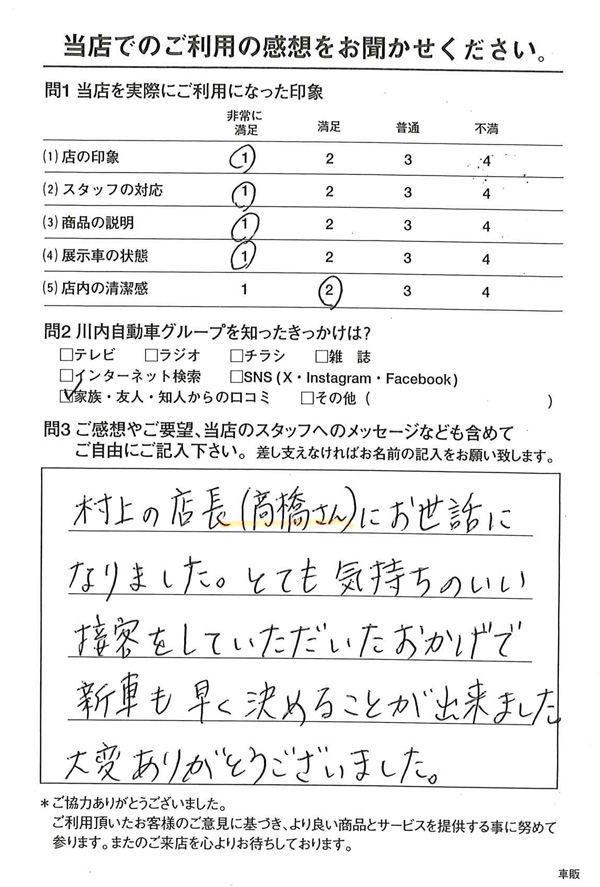 当店でのご利用の感想をお聞かせください。
問1 当店を実際にご利用になった印象
非常に満足 満足 普通 不満
(1) 店の印象 1 2 3 4
(2) スタッフの対応 1 2 3 4
(3) 商品の説明 1 2 3 4
(4) 展示車の状態 1 2 3 4
(5) 店内の清潔感 1 2 3 4
問2 川内自動車グループを知ったきっかけは?
□テレビ □ラジオ □チラシ □雑 誌
□インターネット検索 □SNS (X・Instagram・Facebook)
☑家族・友人・知人からの口コミ □その他 ( )
問3 ご感想やご要望、当店のスタッフへのメッセージなども含めて
ご自由にご記入下さい。差し支えなければお名前の記入をお願い致します。
村上の店長(高橋さん)にお世話に
なりました。とても気持ちのいい
接客をしていただいたおかげで
新車も早く決めることが出来ました
大変ありがとうございました。
*ご協力ありがとうございました。
ご利用頂いたお客様のご意見に基づき、より良い商品とサービスを提供する事に努めて
参ります。またのご来店を心よりお待ちしております。
車販